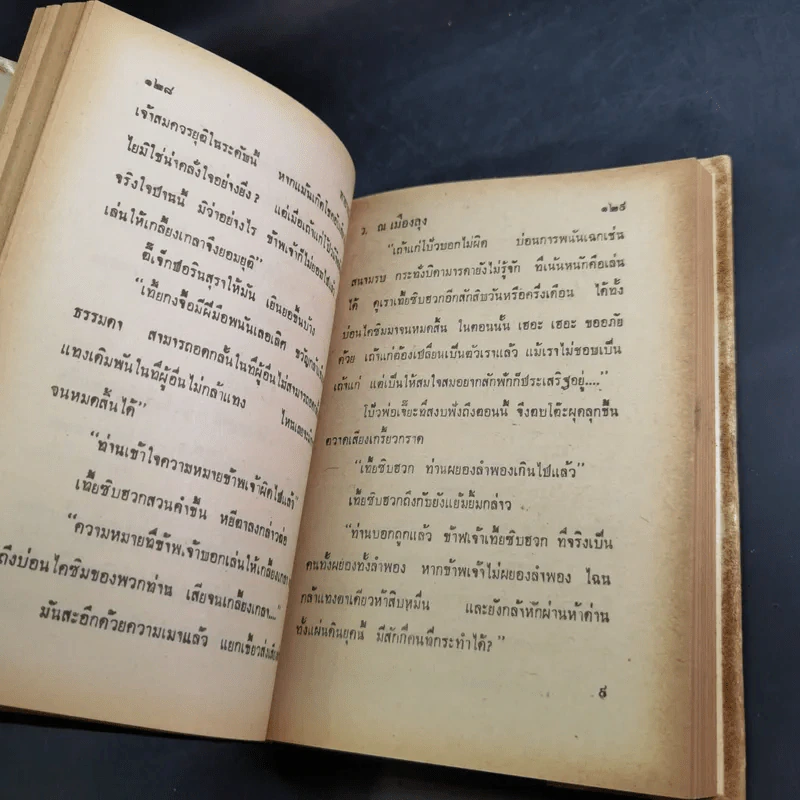 ๑๒๘
เจ้าสมควรยุติในระดับนี้ หากแม้นเกิด
ไยมิใช่น่าคลั่งใจอย่างยิ่ง? แต่เมื่อเถ้าแก่โป้ว
จริงใจปานนี้ มิว่าอย่างไร ข้าพเจ้าก็ไม่ยอม
เล่นให้เกลี้ยงเกลาจึงยอมยุติ"
ตี๋เจ็กฮอรินสุราให้มัน เยินยอขึ้นบ้าง
"เที้ยกงจื้อมีฝีมือพนันเลอเลิศ ขวัญ
ธรรมดา สามารถอดกลั้นในที่ผู้อื่นไม่สามารถ
แทงเดิมพันในที่ผู้อื่นไม่กล้าแทง ไหนเลย
จนหมดสิ้นได้"
"ท่านเข้าใจความหมายข้าพเจ้าผิดไปแล้ว"
เที้ยซิบฮวกสวนคำขึ้น หยีตาลงกล่าวต่อ
"ความหมายที่ข้าพเจ้าบอกเล่นให้เกลี้ยงเกลา
ถึงบ่อนไคซิมของพวกท่าน เสียจนเกลี้ยงเกลา...."
มันสะอึกด้วยความเมาแล้ว แยกเขี้ยว
๓. ณ เมืองลุง
๑๒๙
"เถ้าแก่โป้วบอกไม่ผิด บ่อนการพนันเฉกเช่น
สนามรบ กระทั่งบิดามารดายังไม่รู้จัก ที่เน้นหนักคือเล่น
ได้ ดูเราเที้ยซิบฮวกอีกสักสิบวันหรือครึ่งเดือน ได้ทั้ง
บ่อนไคซิมมาจนหมดสิ้น ในตอนนั้น เฮอะ เฮอะ ขออภัย
ด้วย เถ้าแก่ต้องเปลี่ยนเป็นตัวเราแล้ว แม้เราไม่ชอบเป็น
เถ้าแก่ แต่เป็นให้สมใจสมอยากสักพักก็ประเสริฐอยู่...."
โป้วพ่อเจี๊ยะที่สงบฟังถึงตอนนี้ จึงตบโต๊ะผุดลุกขึ้น
ตวาดเสียงเกรี้ยวกราด
"เที้ยซิบฮวก ท่านผยองลำพองเกินไปแล้ว"
เที้ยซิบฮวกถึงกับยังแย้มยิ้มกล่าว
"ท่านบอกถูกแล้ว ข้าพเจ้าเที้ยซิบฮวก ที่จริงเป็น
คนทั้งผยองทั้งลำพอง หากข้าพเจ้าไม่ผยองลำพอง ไฉน
กล้าแทงตาเดียวห้าสิบหมื่น และยังกล้าหักผ่านห้าด่าน
ทั้งแผ่นดินยุคนี้ มีสักกี่คนที่กระทำได้?"
๙